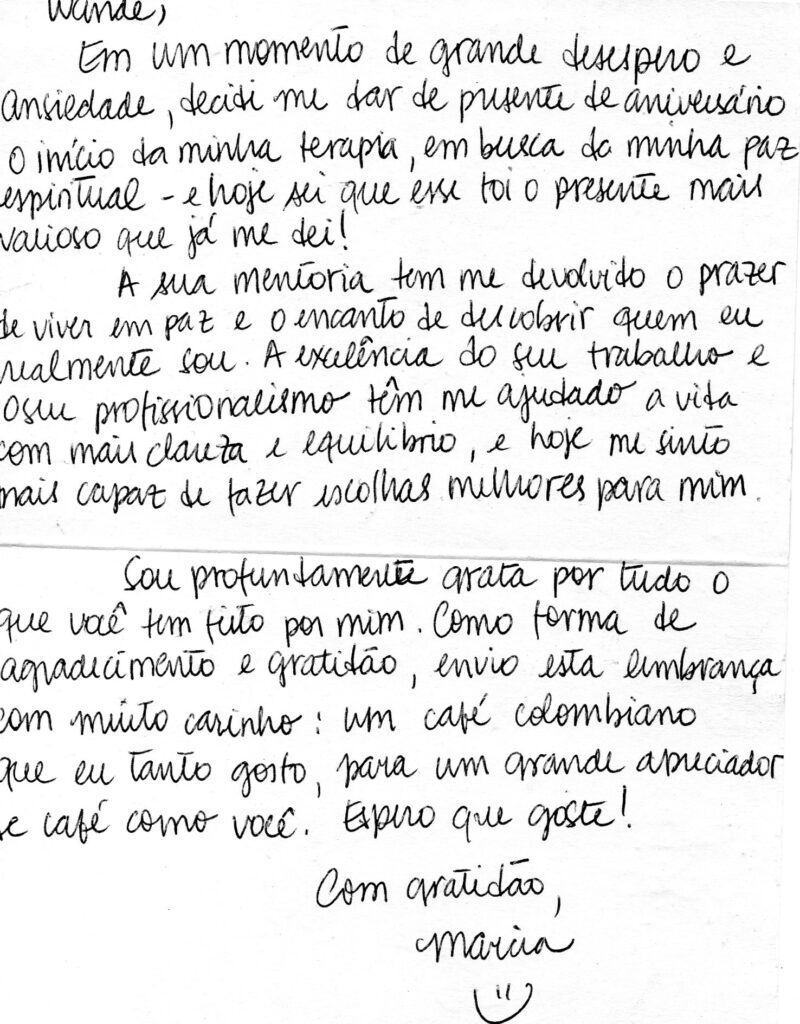 Wande,
Em um momento de grande desespero e
ansiedade, decidi me dar de presente de aniversário
o início da minha terapia, em busca da minha paz
espiritual - e hoje sei que esse foi o presente mais
valioso que já me dei!
A sua mentoria tem me devolvido o prazer
de viver em paz e o encanto de descobrir quem eu
realmente sou. A excelência do seu trabalho e
o seu profissionalismo têm me ajudado a vida
com mais clareza e equilíbrio, e hoje me sinto
mais capaz de fazer escolhas melhores para mim.
Sou profundamente grata por tudo o
que você tem feito por mim. Como forma de
agradecimento e gratidão, envio esta lembrança
com muito carinho: um café colombiano
que eu tanto gosto, para um grande apreciador
de café como você. Espero que goste!
Com gratidão,
Marcia